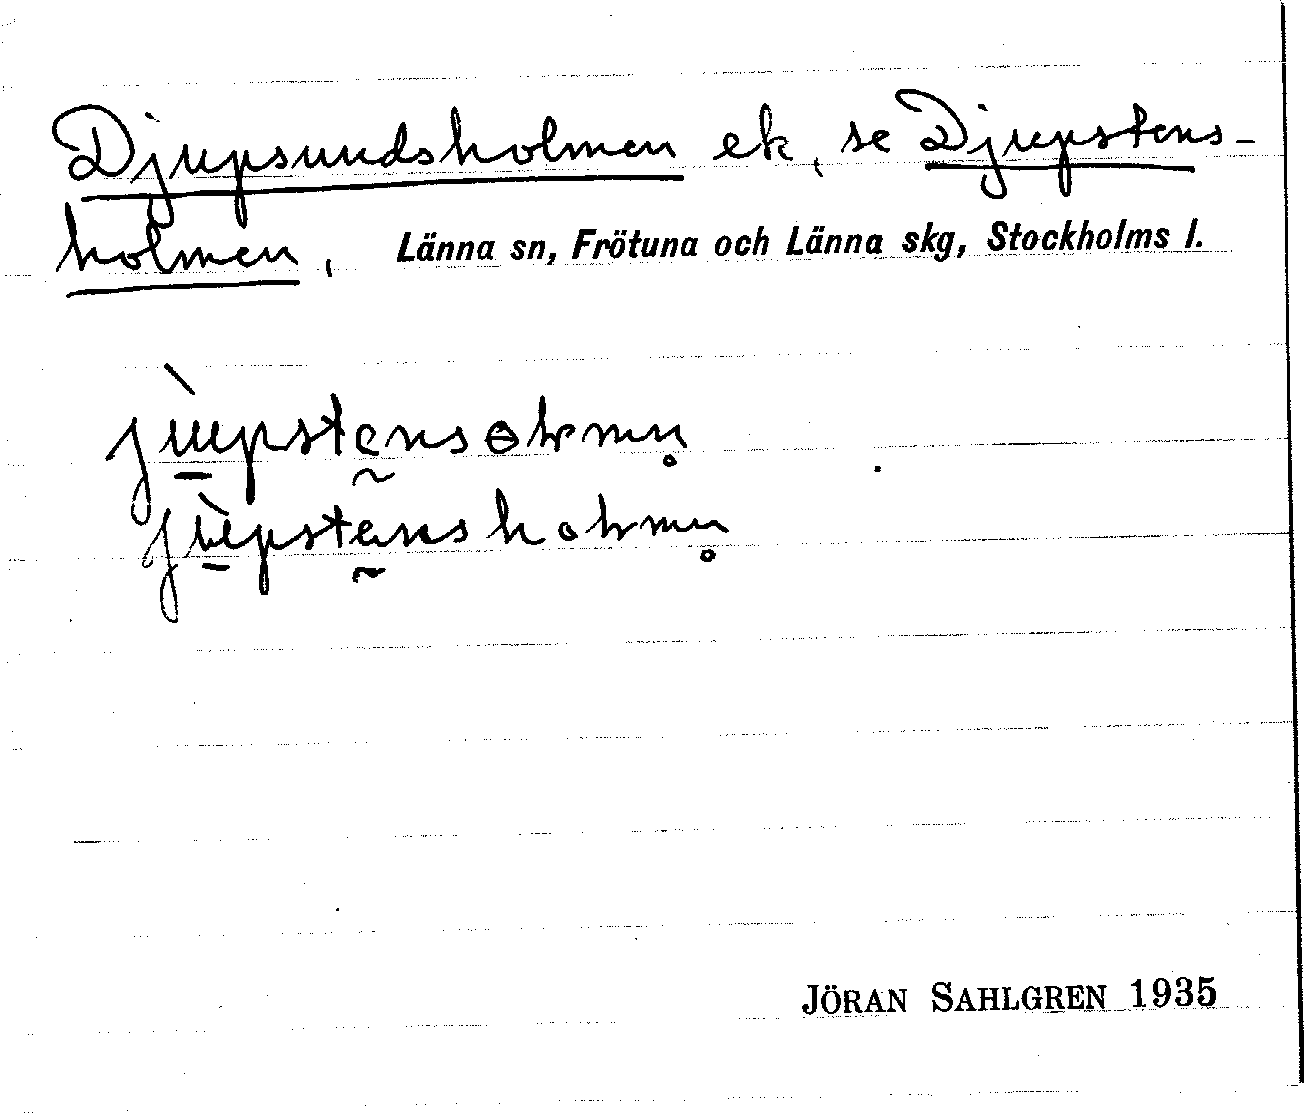 Djupsundsholmen ek, se Djupstens-
holmen, Länna sn, Frötuna och Länna skg, Stockholms l.
JÖRAN SAHLGREN 1935